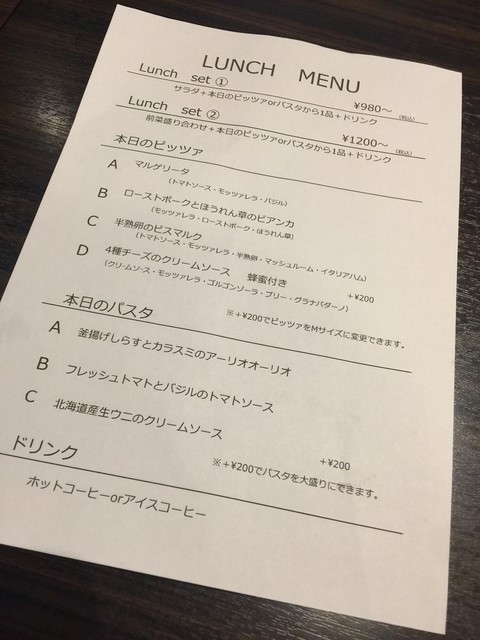 LUNCH MENU
Lunch set ① ¥980～ (税込)
サラダ＋本日のピッツァorパスタから1品＋ドリンク
Lunch set ② ¥1200～ (税込)
前菜盛り合わせ＋本日のピッツァorパスタから1品＋ドリンク
本日のピッツァ
A マルゲリータ
(トマトソース・モッツァレラ・バジル)
B ローストポークとほうれん草のビアンカ
(モッツァレラ・ローストポーク・ほうれん草)
C 半熟卵のビスマルク
(トマトソース・モッツァレラ・半熟卵・マッシュルーム・イタリアハム)
D 4種チーズのクリームソース 蜂蜜付き +¥200
(クリームソース・モッツァレラ・ゴルゴンゾーラ・ブリー・グラナパダーノ)
※＋¥200でピッツァをMサイズに変更できます。
本日のパスタ
A 釜揚げしらすとカラスミのアーリオオーリオ
B フレッシュトマトとバジルのトマトソース
C 北海道産生ウニのクリームソース +¥200
※＋¥200でパスタを大盛りにできます。
ドリンク
ホットコーヒーorアイスコーヒー